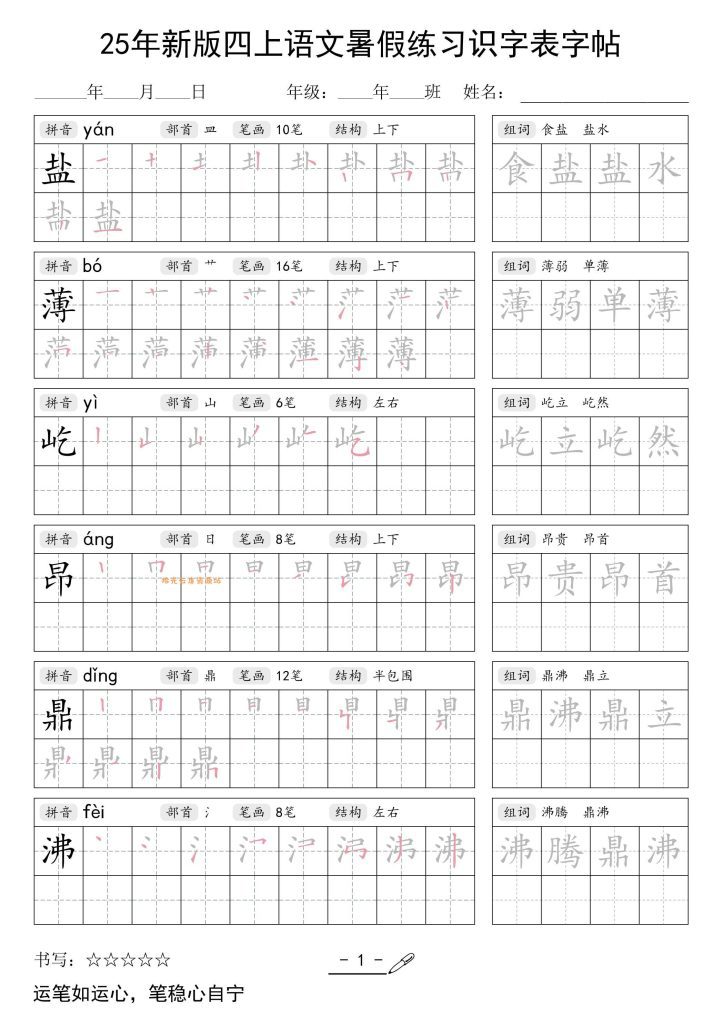 25年新版四上语文暑假练习识字表字帖
______年____月____日 年级：____年____班 姓名：____________________
拼音 yán 部首 皿 笔画 10笔 结构 上下 组词 食盐 盐水
盐 食盐盐水
盐
拼音 bó 部首 艹 笔画 16笔 结构 上下 组词 薄弱 单薄
薄 薄弱单薄
薄
拼音 yì 部首 山 笔画 6笔 结构 左右 组词 屹立 屹然
屹 屹 屹立屹然
拼音 áng 部首 日 笔画 8笔 结构 上下 组词 昂贵 昂首
昂 昂 昂贵昂首
拼音 dǐng 部首 鼎 笔画 12笔 结构 半包围 组词 鼎沸 鼎立
鼎 鼎沸鼎立
鼎
拼音 fèi 部首 氵 笔画 8笔 结构 左右 组词 沸腾 鼎沸
沸 沸 沸腾鼎沸
书写：☆☆☆☆☆ - 1 -
运笔如运心，笔稳心自宁